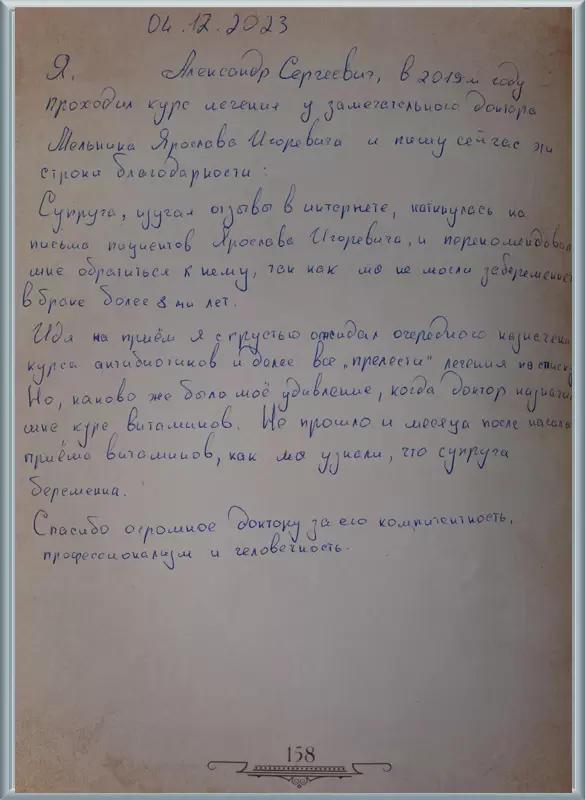 04.12.2023
Я, Александр Сергеевич, в 2019м году
проходил курс лечения у замечательного доктора
Мельника Ярослава Игоревича и пишу сейчас эти
строки благодарности:
Супруга, изучая отзывы в интернете, наткнулась на
письма пациентов Ярослава Игоревича, и порекомендовала
мне обратиться к нему, так как мы не могли забеременеть
в браке более 8 ми лет.
Идя на приём я с грустью ожидал очередного назначения
курса антибиотиков и далее все „прелести" лечения по списку.
Но, каково же было моё удивление, когда доктор назначил
мне курс витаминов. Не прошло и месяца после начала
приёма витаминов, как мы узнали, что супруга
беременна.
Спасибо огромное доктору за его компитентность,
профессионализм и человечность.
158